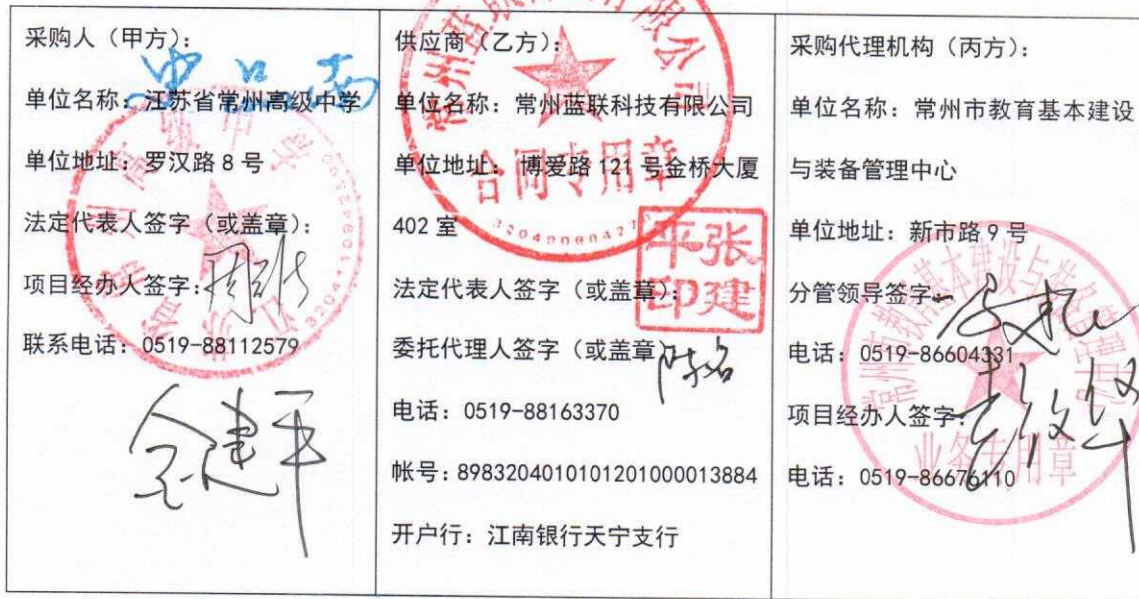 采购人（甲方）：
单位名称：江苏省常州高级中学
单位地址：罗汉路8号
法定代表人签字（或盖章）：
项目经办人签字：
联系电话：0519-88112579
金建平
供应商（乙方）：
单位名称：常州蓝联科技有限公司
单位地址：博爱路121号金桥大厦
402室
法定代表人签字（或盖章）：
委托代理人签字（或盖章）
电话：0519-88163370
帐号：8983204010101201000013884
开户行：江南银行天宁支行
合同专用章
张建平印
采购代理机构（丙方）：
单位名称：常州市教育基本建设
与装备管理中心
单位地址：新市路9号
分管领导签字：
电话：0519-86604331
项目经办人签字：
电话：0519-86676110
常州市教育基本建设与装备管理中心
业务专用章